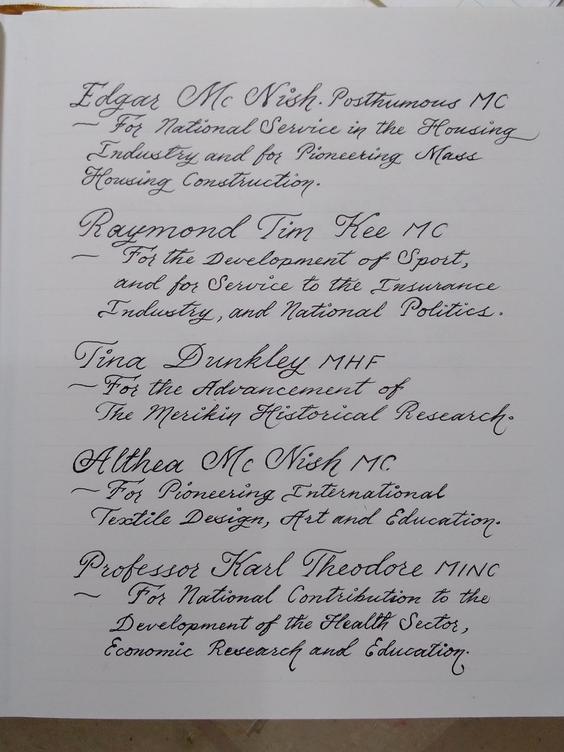 Edgar Mc Nish. Posthumous MC
~ For National Service in the Housing
Industry and for Pioneering Mass
Housing Construction.
Raymond Tim Kee MC
~ For the Development of Sport,
and for Service to the Insurance
Industry, and National Politics.
Tina Dunkley MHF
~ For the Advancement of
The Merikin Historical Research.
Althea Mc Nish MC
~ For Pioneering International
Textile Design, Art and Education.
Professor Karl Theodore MINC
~ For National Contribution to the
Development of the Health Sector,
Economic Research and Education.